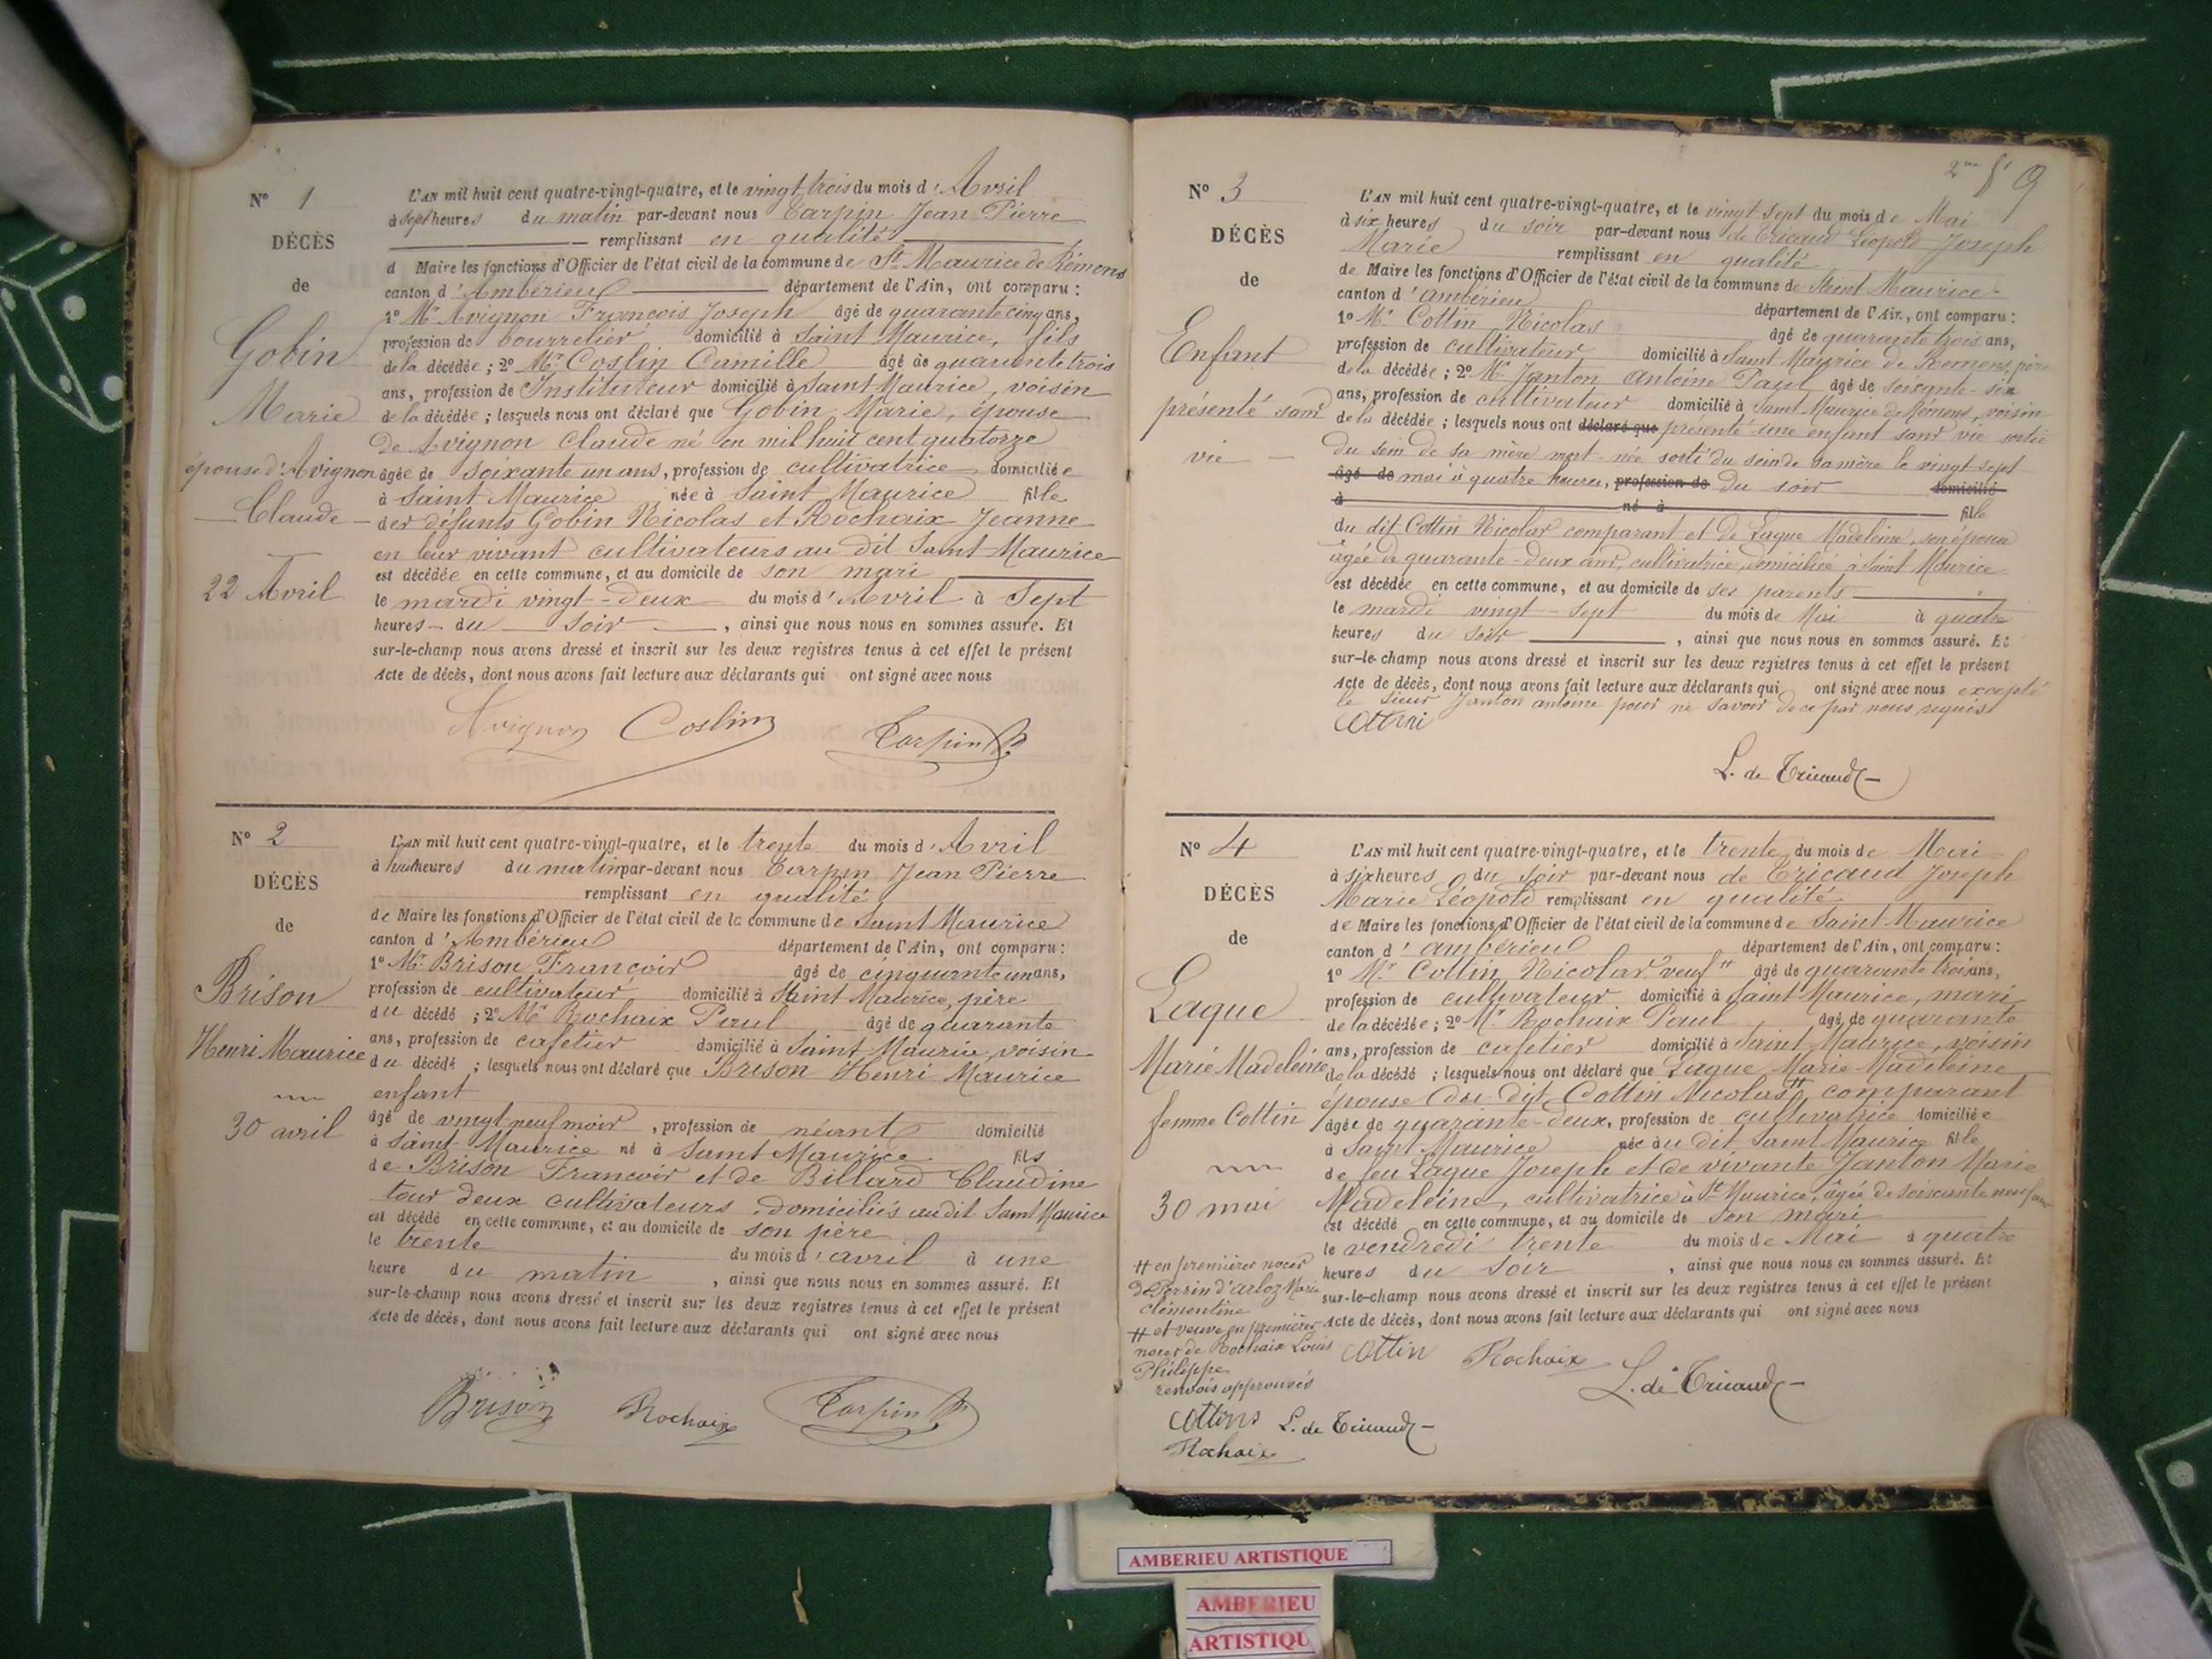 N° 1
DÉCÈS
de
Gobin
Marie
épouse d'Avignon
Claude
22 Avril
L'AN mil huit cent quatre-vingt-quatre, et le vingt trois du mois d'Avril
à sept heures du matin par-devant nous Carpin Jean Pierre
remplissant en qualité
d Maire les fonctions d'Officier de l'état civil de la commune de St Maurice de Rémens
canton d'Ambérieu département de l'Ain, ont comparu :
1° Mr Avignon François Joseph âgé de quarante cinq ans,
profession de bourrelier domicilié à Saint Maurice, fils
de la décédée ; 2° Mr Coslin Camille âgé de quarante trois
ans, profession de Instituteur domicilié à Saint Maurice, voisin
de la décédée ; lesquels nous ont déclaré que Gobin Marie, épouse
de Avignon Claude né en mil huit cent quatorze
âgée de soixante un ans, profession de cultivatrice domiciliée
à Saint Maurice née à Saint Maurice fille
des défunts Gobin Nicolas et Rochaix Jeanne
en leur vivant cultivateurs au dit Saint Maurice
est décédée en cette commune, et au domicile de son mari
le mardi vingt-deux du mois d'Avril à Sept
heures du soir, ainsi que nous nous en sommes assuré. Et
sur-le-champ nous avons dressé et inscrit sur les deux registres tenus à cet effet le présent
Acte de décès, dont nous avons fait lecture aux déclarants qui ont signé avec nous
Avignon Coslin Carpin
N° 2
DÉCÈS
de
Brison
Henri Maurice
30 avril
L'AN mil huit cent quatre-vingt-quatre, et le trente du mois d'Avril
à huit heures du matin par-devant nous Carpin Jean Pierre
remplissant en qualité
de Maire les fonctions d'Officier de l'état civil de la commune de Saint Maurice
canton d'Ambérieu département de l'Ain, ont comparu :
1° Mr Brison François âgé de cinquante un ans,
profession de cultivateur domicilié à Saint Maurice, père
du décédé ; 2° Mr Rochaix Paul âgé de quarante
ans, profession de cafetier domicilié à Saint Maurice voisin
du décédé ; lesquels nous ont déclaré que Brison Henri Maurice
enfant
âgé de vingt neuf mois, profession de néant domicilié
à Saint Maurice né à Saint Maurice fils
de Brison François et de Billard Claudine
tous deux cultivateurs domiciliés au dit Saint Maurice
est décédé en cette commune, et au domicile de son père
le trente du mois d'avril à une
heure du matin, ainsi que nous nous en sommes assuré. Et
sur-le-champ nous avons dressé et inscrit sur les deux registres tenus à cet effet le présent
Acte de décès, dont nous avons fait lecture aux déclarants qui ont signé avec nous
Brison Rochaix Carpin
9
N° 3
DÉCÈS
de
Enfant
présenté sans
vie
L'AN mil huit cent quatre-vingt-quatre, et le vingt sept du mois de Mai
à six heures du soir par-devant nous de Tricaud Léopold Joseph
Marie remplissant en qualité
de Maire les fonctions d'Officier de l'état civil de la commune de Saint Maurice
canton d'ambérieu département de l'Ain, ont comparu :
1° Mr Cottin Nicolas âgé de quarante trois ans,
profession de cultivateur domicilié à Saint Maurice de Remens, père
de la décédée ; 2° Mr Janton Antoine Paul âgé de soixante-six
ans, profession de cultivateur domicilié à Saint Maurice de Rémens, voisin
de la décédée ; lesquels nous ont déclaré que présenté une enfant sans vie sortie
du sein de sa mère mort-née sorti du sein de sa mère le vingt sept
âgé de mai à quatre heures, profession de du soir domicilié
à né à fille
du dit Cottin Nicolas comparant et de Laque Madeleine, son épouse
âgée de quarante-deux ans, cultivatrice, domiciliée à Saint Maurice
est décédée en cette commune, et au domicile de ses parents
le mardi vingt-sept du mois de Mai à quatre
heures du soir, ainsi que nous nous en sommes assuré. Et
sur-le-champ nous avons dressé et inscrit sur les deux registres tenus à cet effet le présent
Acte de décès, dont nous avons fait lecture aux déclarants qui ont signé avec nous excepté
le sieur Janton antoine pour ne savoir de ce par nous requis
Cottin
L. de Tricaud
N° 4
DÉCÈS
de
Laque
Marie Madeleine
femme Cottin
30 mai
L'AN mil huit cent quatre-vingt-quatre, et le trente du mois de Mai
à six heures du soir par-devant nous de Tricaud Joseph
Marie Léopold remplissant en qualité
de Maire les fonctions d'Officier de l'état civil de la commune de Saint Maurice
canton d'ambérieu département de l'Ain, ont comparu :
1° Mr Cottin Nicolas veuf # âgé de quarante trois ans,
profession de cultivateur domicilié à Saint Maurice, mari
de la décédée ; 2° Mr Rochaix Paul âgé de quarante
ans, profession de cafetier domicilié à Saint Maurice, voisin
de la décédé ; lesquels nous ont déclaré que Laque Marie Madeleine
épouse du dit Cottin Nicolas # comparant
âgée de quarante-deux, profession de cultivatrice domiciliée
à Saint Maurice née au dit Saint Maurice fille
de feu Laque Joseph et de vivante Janton Marie
Madeleine, cultivatrice à St Maurice, âgée de soixante neuf ans
est décédé en cette commune, et au domicile de son mari
le vendredi trente du mois de Mai à quatre
heures du soir, ainsi que nous nous en sommes assuré. Et
sur-le-champ nous avons dressé et inscrit sur les deux registres tenus à cet effet le présent
Acte de décès, dont nous avons fait lecture aux déclarants qui ont signé avec nous
# en premières noces
de Perrin d'arloz Marie
clémentine
# et veuve en premières
noces de Rochaix Louis
Philippe
renvois approuvés
Cottin Rochaix L. de Tricaud
Cottin L. de Tricaud
Rochaix
AMBERIEU ARTISTIQUE
AMBERIEU
ARTISTIQU